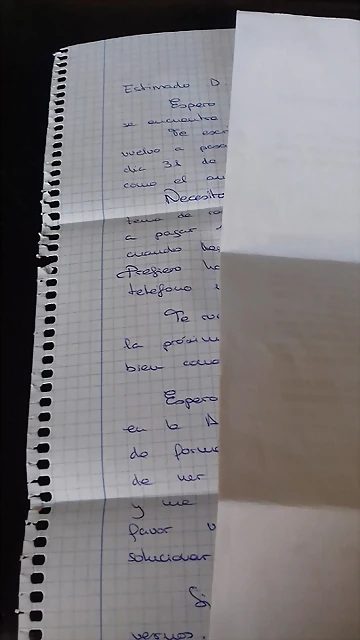 Estimado D.
Espero
se encuentre
Te escr
vuelvo a pasa
día 31 de
como el au
Necesito
tema de
a pagar
cuando
Prefiero ha
telefono
Te
la próxim
bien como
Espero
en la A
do forma
de ver
y me
favor v
solucionar
Si
vernos.